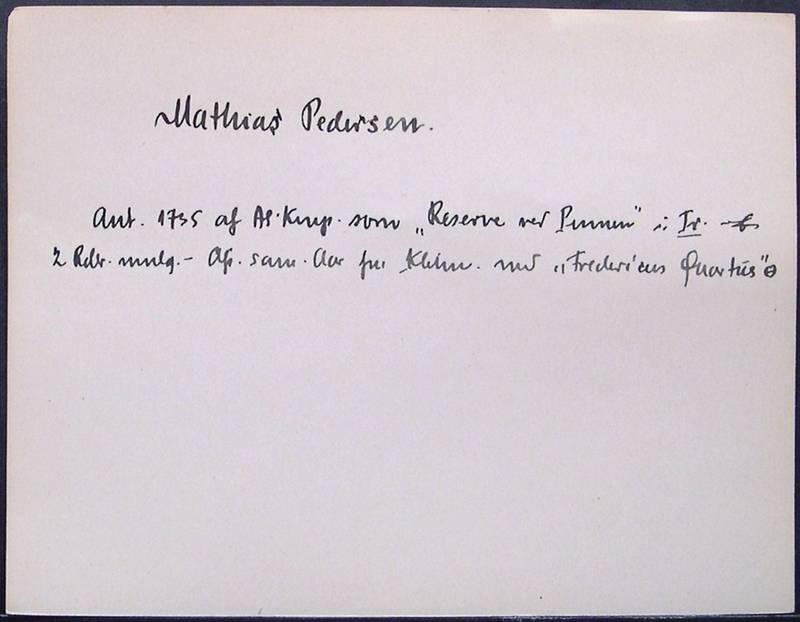 Mathias Pedersen.
Ant. 1735 af As. Komp. som „Reserve ved Pennen" i Tr.
2 Rdlr. mnlg. - Afs. sam. Aar fra Kbhn. med „Fredericus Quartus"